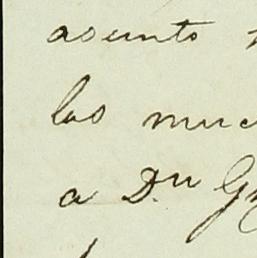 asunto
los muc
a Dn G